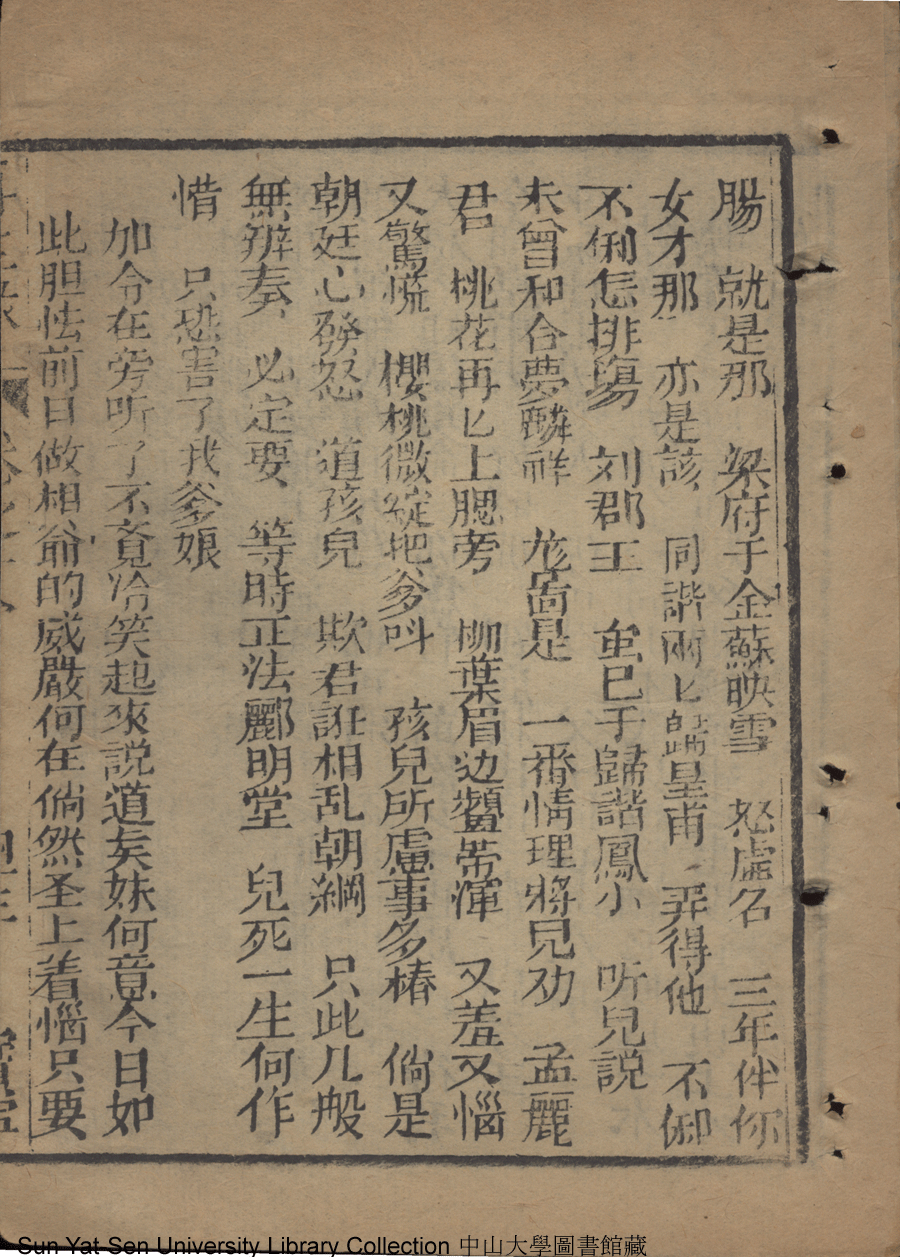 腸　就是那　梁府千金蘇映雪　怒虛名　三年伴你
女才那　亦是該　同諧兩匕歸皇甫　弄得他　不
不俐怎排塲　刘郡王　虽巳于歸諧鳳小　听兒説
未曾和合夢麟祥　范啚是　一番情理將兒劝　孟麗
君　桃花再匕上腮旁　柳葉眉边顰帶渾　又羞又惱
又驚慌　櫻桃微綻把爹呌　孩兒所慮事多椿　倘是
朝廷心發怒　道孩兒　欺君誑相乱朝綱　只此几般
無辨奏　必定要　等時正法酈明堂　兒死一生何作
惜　只恐害了我爹娘
加令在旁听了不竟冷笑起來説道矣妹何竟今日如
此胆怯前日做相爺的威嚴何在倘然圣上着惱只要
Sun Yat Sen University Library Collection 中山大學圖書館藏